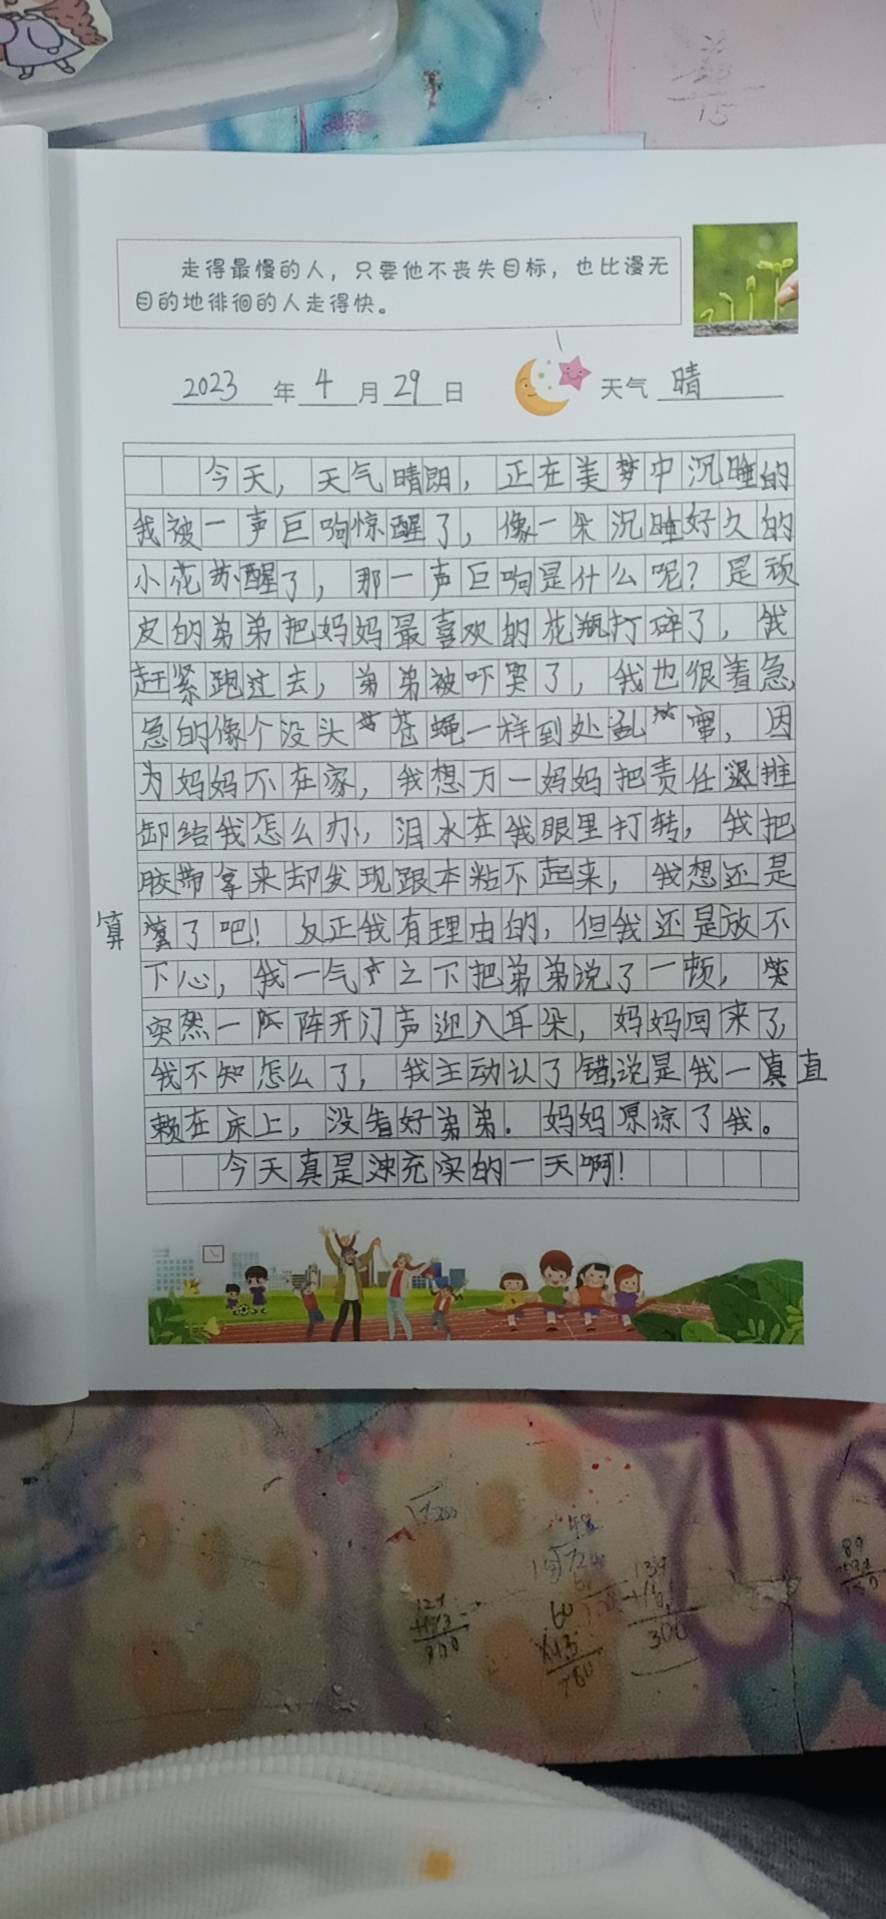 走得最慢的人，只要他不丧失目标，也比漫无
目的地徘徊的人走得快。
2023年4月29日 天气 晴
今天，天气晴朗，正在美梦中沉睡的
我被一声巨响惊醒了，像一朵沉睡好久的
小花苏醒了，那一声巨响是什么呢？是顽
皮的弟弟把妈妈最喜欢的花瓶打碎了，我
赶紧跑过去，弟弟被吓哭了，我也很着急，
急的像个没头苍蝇一样到处乱窜，因
为妈妈不在家，我想万一妈妈把责任推
卸给我怎么办，泪水在我眼里打转，我把
胶带拿来却发现跟本粘不起来，我想还是
算
了吧！反正我有理由的，但我还是放不
下心，我一气之下把弟弟说了一顿，
突然一阵阵开门声迎入耳朵，妈妈回来了，
我不知怎么了，我主动认了错，说是我一直
赖在床上，没看好弟弟．妈妈原谅了我。
今天真是充实的一天啊！